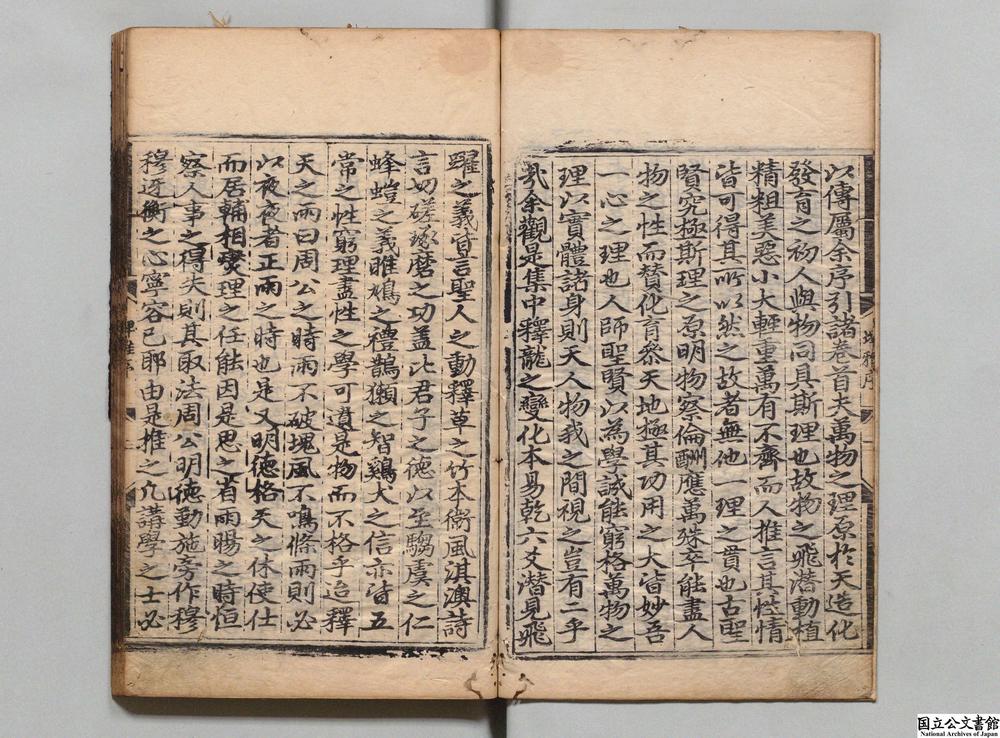 以傳屬余序引諸卷首夫萬物之理原於天造化
發育之初人與物同具斯理也故物之飛潛動植
精粗美惡小大輕重萬有不齊而人推言其性情
皆可得其所以然之故者無他一理之貫也古聖
賢究極斯理之原明物察倫酬應萬殊卒能盡人
物之性而賛化育叅天地極其功用之大皆妙吾
一心之理也人師聖賢以為學誠能窮格萬物之
理以實體諸身則天人物我之間視之豈有二乎
㢤余觀是集中釋龍之變化本易乾六爻潛見飛
躍之義宣言聖人之動釋草之竹本衛風淇澳詩
言切磋琢磨之功盖比君子之德以至騶虞之仁
蜂螘之義雎鳩之禮鵲獺之智鷄犬之信亦皆五
常之性窮理盡性之學可遺是物而不格乎迨釋
天之雨曰周公之時雨不破塊風不鳴條雨則必
以夜夜者正雨之時也是又明德格天之休使仕
而居輔相燮理之任能因是思之省雨暘之時恒
察人事之得失則其取法周公明德動施旁作穆
穆迓衡之心寧容已耶由是推之凢講學之士必
埤雅序
国立公文書館
National Archives of Japan